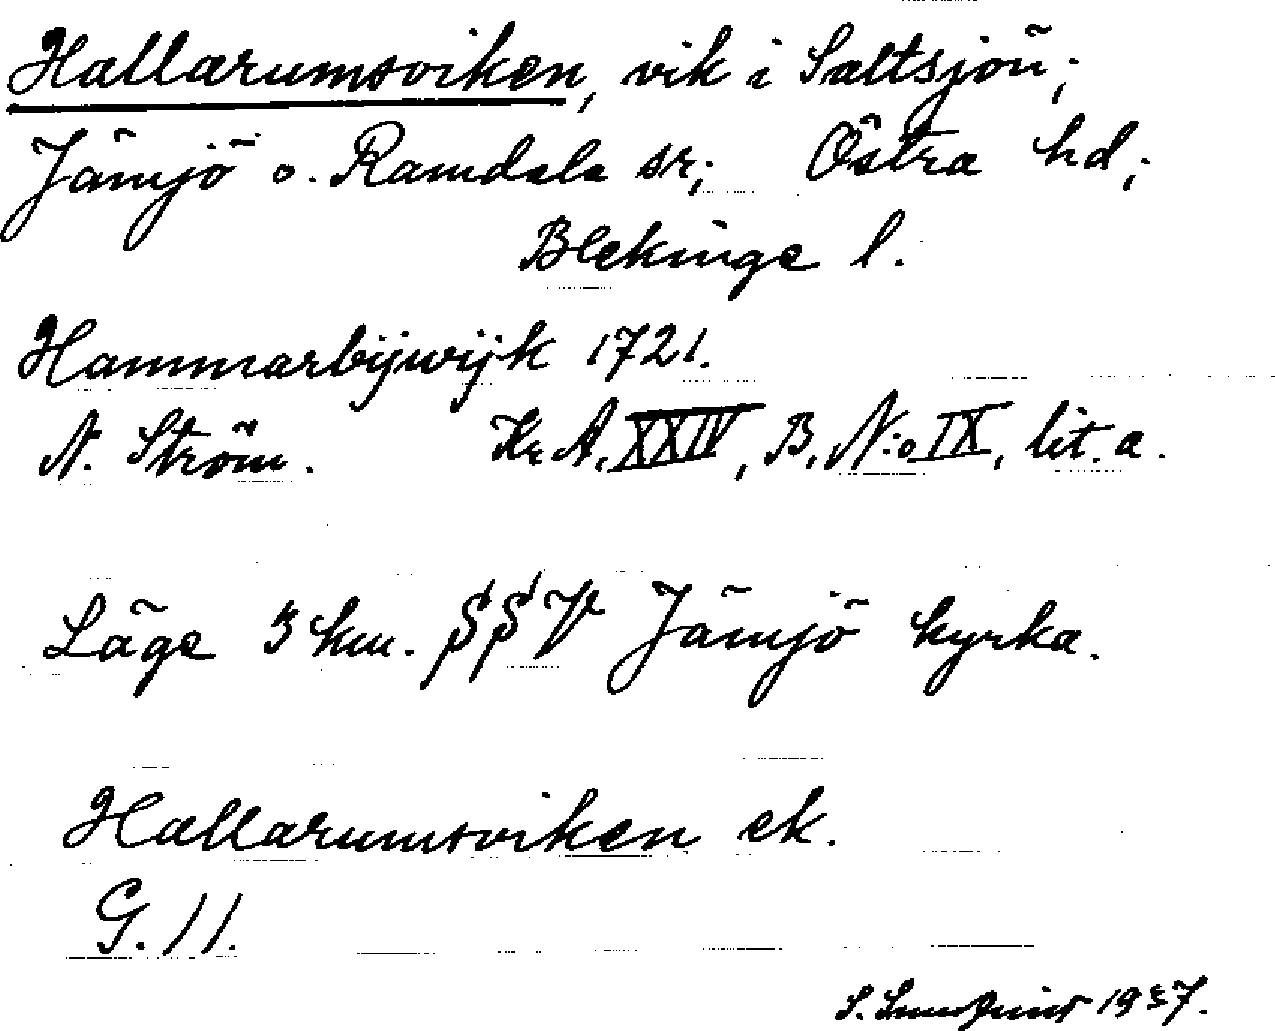 Hallarumsviken, vik i Saltsjön;
Jämjö o. Ramdala sr; Östra hd;
Blekinge l.
Hammarbijwijk 1721.
N. Ström. Kr. A. XXIV, B, N:o IX, lit. a.
Läge 3 km. SSV Jämjö kyrka.
Hallarumsviken ek.
G. 11.
S. 1937.